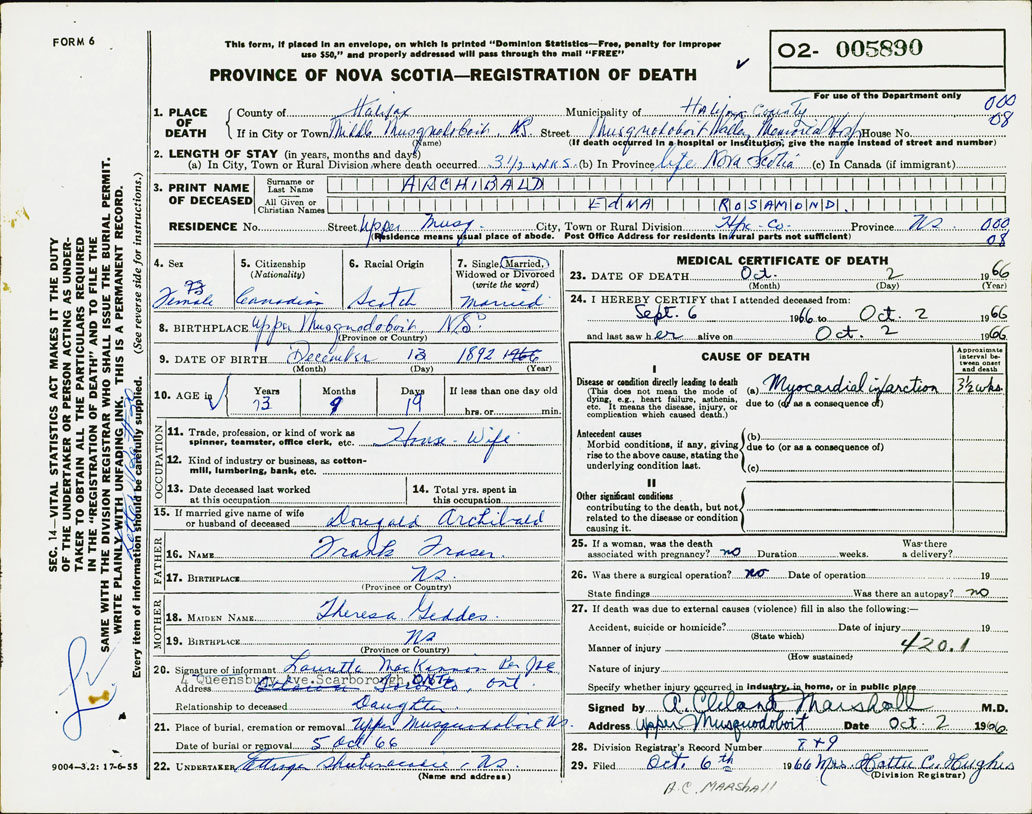 FORM 6
This form, if placed in an envelope, on which is printed "Dominion Statistics—Free, penalty for improper
use $50," and properly addressed will pass through the mail "FREE"
PROVINCE OF NOVA SCOTIA—REGISTRATION OF DEATH
02- 005890
For use of the Department only
000
08
1. PLACE OF DEATH
County of Halifax Municipality of Halifax County
If in City or Town Middle Musquodoboit, N.S. Street Musquodoboit Valley Memorial Hosp House No.
(Name) (If death occurred in a hospital or institution, give the name instead of street and number)
2. LENGTH OF STAY (in years, months and days)
(a) In City, Town or Rural Division where death occurred 3 1/2 wks. (b) In Province Life Nova Scotia (c) In Canada (if immigrant)
3. PRINT NAME OF DECEASED
Surname or Last Name ARCHIBALD
All Given or Christian Names EDNA ROSAMOND.
RESIDENCE No. Street Upper Musq. City, Town or Rural Division Hfx. Co. Province NS 000
(Residence means usual place of abode. Post Office Address for residents in rural parts not sufficient) 08
4. Sex Female
5. Citizenship (Nationality) Canadian
6. Racial Origin Scotch
7. Single, Married, Widowed or Divorced (write the word) Married
8. BIRTHPLACE Upper Musquodoboit, N.S.
(Province or Country)
9. DATE OF BIRTH December 13 1892 1966
(Month) (Day) (Year)
10. AGE in Years 73 Months 9 Days 19 If less than one day old hrs. or min.
OCCUPATION
11. Trade, profession, or kind of work as spinner, teamster, office clerk, etc. House-Wife
12. Kind of industry or business, as cotton-mill, lumbering, bank, etc.
13. Date deceased last worked at this occupation
14. Total yrs. spent in this occupation
15. If married give name of wife or husband of deceased Dougald Archibald
FATHER
16. NAME Frank Fraser
17. BIRTHPLACE NS.
(Province or Country)
MOTHER
18. MAIDEN NAME Theresa Geddes.
19. BIRTHPLACE NS
(Province or Country)
20. Signature of informant Lauretta MacKinnon Per
4 Queensbury Ave. Scarborough, ONT.
Address Toronto, Ont.
Relationship to deceased Daughter
21. Place of burial, cremation or removal Upper Musquodoboit NS.
Date of burial or removal 5 Oct 66
22. UNDERTAKER Shubenacadie, NS
(Name and address)
MEDICAL CERTIFICATE OF DEATH
23. DATE OF DEATH Oct. 2 1966
(Month) (Day) (Year)
24. I HEREBY CERTIFY that I attended deceased from:
Sept. 6 1966 to Oct. 2 1966
and last saw her alive on Oct. 2 1966
CAUSE OF DEATH
Approximate interval between onset and death
I
Disease or condition directly leading to death
(This does not mean the mode of dying, e.g., heart failure, asthenia, etc. It means the disease, injury, or complication which caused death.)
(a) Myocardial infarction 3 1/2 wks
due to (or as a consequence of)
Antecedent causes
Morbid conditions, if any, giving rise to the above cause, stating the underlying condition last.
(b)
due to (or as a consequence of)
(c)
II
Other significant conditions
contributing to the death, but not related to the disease or condition causing it.
25. If a woman, was the death associated with pregnancy? no Duration weeks. Was there a delivery?
26. Was there a surgical operation? no Date of operation 19
State findings Was there an autopsy? no
27. If death was due to external causes (violence) fill in also the following:—
Accident, suicide or homicide? Date of injury 19
(State which)
Manner of injury 420.1
(How sustained)
Nature of injury
Specify whether injury occurred in industry, in home, or in public place
Signed by A. Cleland Marshall M.D.
Address Upper Musquodoboit Date Oct. 2 1966
28. Division Registrar's Record Number 849
29. Filed Oct. 6th 1966 Mrs. Hattie C. Hughes
(Division Registrar)
A.C. MARSHALL
9004—3,2: 17-6-55
SEC. 14—VITAL STATISTICS ACT MAKES IT THE DUTY
OF THE UNDERTAKER OR PERSON ACTING AS UNDER-
TAKER TO OBTAIN ALL THE PARTICULARS REQUIRED
IN THE "REGISTRATION OF DEATH" AND TO FILE THE
SAME WITH THE DIVISION REGISTRAR WHO SHALL ISSUE THE BURIAL PERMIT.
WRITE PLAINLY WITH UNFADING INK. THIS IS A PERMANENT RECORD.
Every item of information should be carefully supplied. (See reverse side for instructions.)